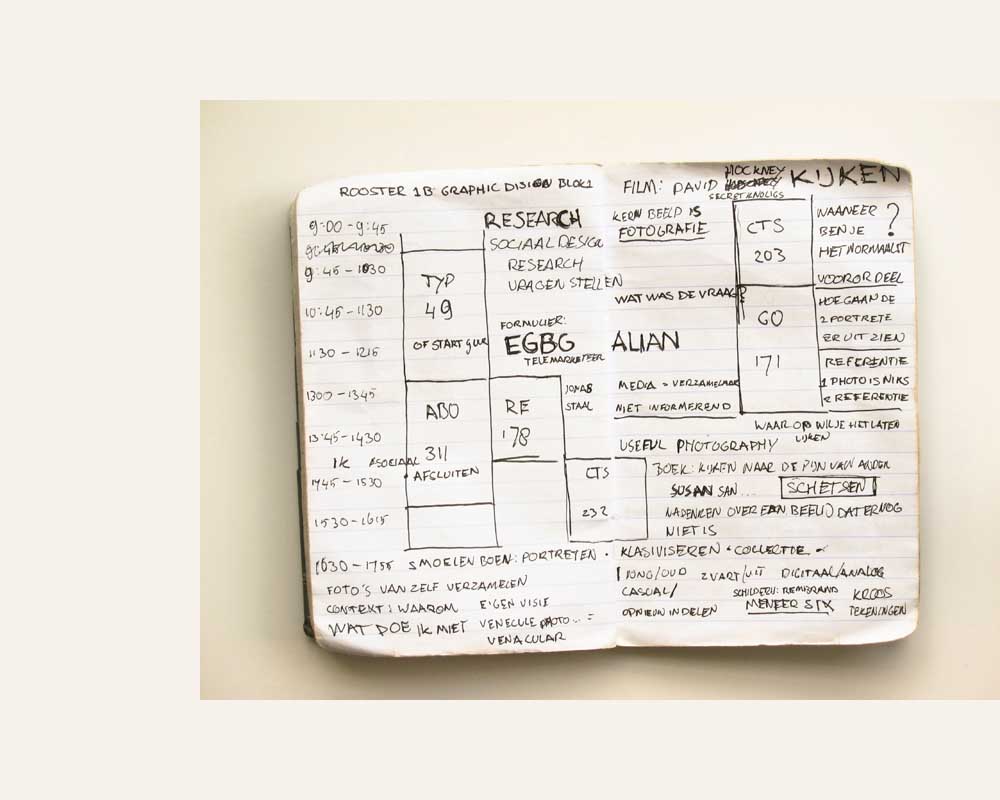 ROOSTER 1B GRAPHIC DISIGN BLOK1
9:00 - 9:45
9:45 - 1030
10:45 - 1130
1130 - 1215
1300 - 1345
13:45 - 1430
IK ASOCIAAL
1745 - 1530
1530 - 1615
TYP
49
OF START 9 UUR
ABO
311
AFSCLUITEN
RESEARCH
SOCIAAL DESIGN
RESEARCH
VRAGEN STELLEN
FORMULIER:
EGBG
TELEMARKETEER
RE
178
JONAS
STAAL
CTS
232
1630 - 1755 SMOELEN BOEN: PORTRETEN
FOTO'S VAN ZELF VERZAMELEN
CONTEXT: WAAROM EIGEN VISIE
WAT DOE IK MIET VENECULE PHOTO... =
VENACULAR
FILM: DAVID HOCKNEY KIJKEN
SECRET KNOLIGS
KERN BEELD IS
FOTOGRAFIE
WAT WAS DE VRAAG?
ALIAN
MEDIA = VERZAMELNAAM
NIET INFORMEREND
CTS
203
GO
171
WANEER ?
BEN JE
HET NORMAALST
VOOROR DEEL
HOE GAAN DE
2 PORTRETE
ER UIT ZIEN
REFERENTIE
1 PHOTO IS NIKS
2 REFERENTIE
WAAR OP WIL JE HET LATEN
LIJKEN
USEFUL PHOTOGRAPHY
BOEK: KIJKEN NAAR DE PIJN VAN ANDER
SUSAN SAN... SCHETSEN
NADENKEN OVER EEN BEELD DAT ER NOG
NIET IS
KLASIVISEREN • COLLECTIE
JONG/OUD ZWART/WIT DIGITAAL/ANALOG
CASUAL/ SCHILDERIJ: REMBRAND KROOS
OPNIEUW INDELEN MENEER SIX TEKENINGEN